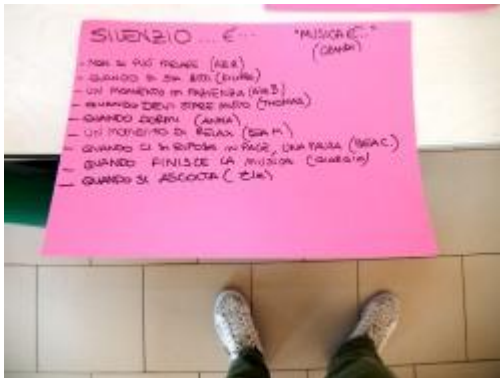 SILENZIO ... È... "MUSICA È..."
- NON SI PUÒ PARLARE
- QUANDO SI STA
- UN MOMENTO DI
- QUANDO DEVI STARE MUTO (THOMAS)
- QUANDO DORMI (ANNA)
- UN MOMENTO DI RELAX (BEA M)
- QUANDO CI SI RIPOSA IN PACE, UNA PAUSA (BEA C)
- QUANDO FINISCE LA MUSICA (GIORGIA)
- QUANDO SI ASCOLTA